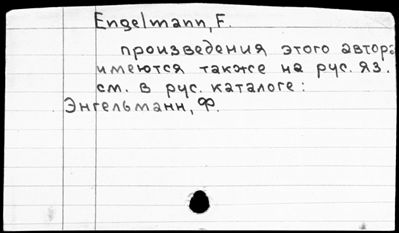 Engelmann, F.
произведения этого автора
имеются также на рус. яз.
см. в рус. каталоге:
Энгельманн, Ф.